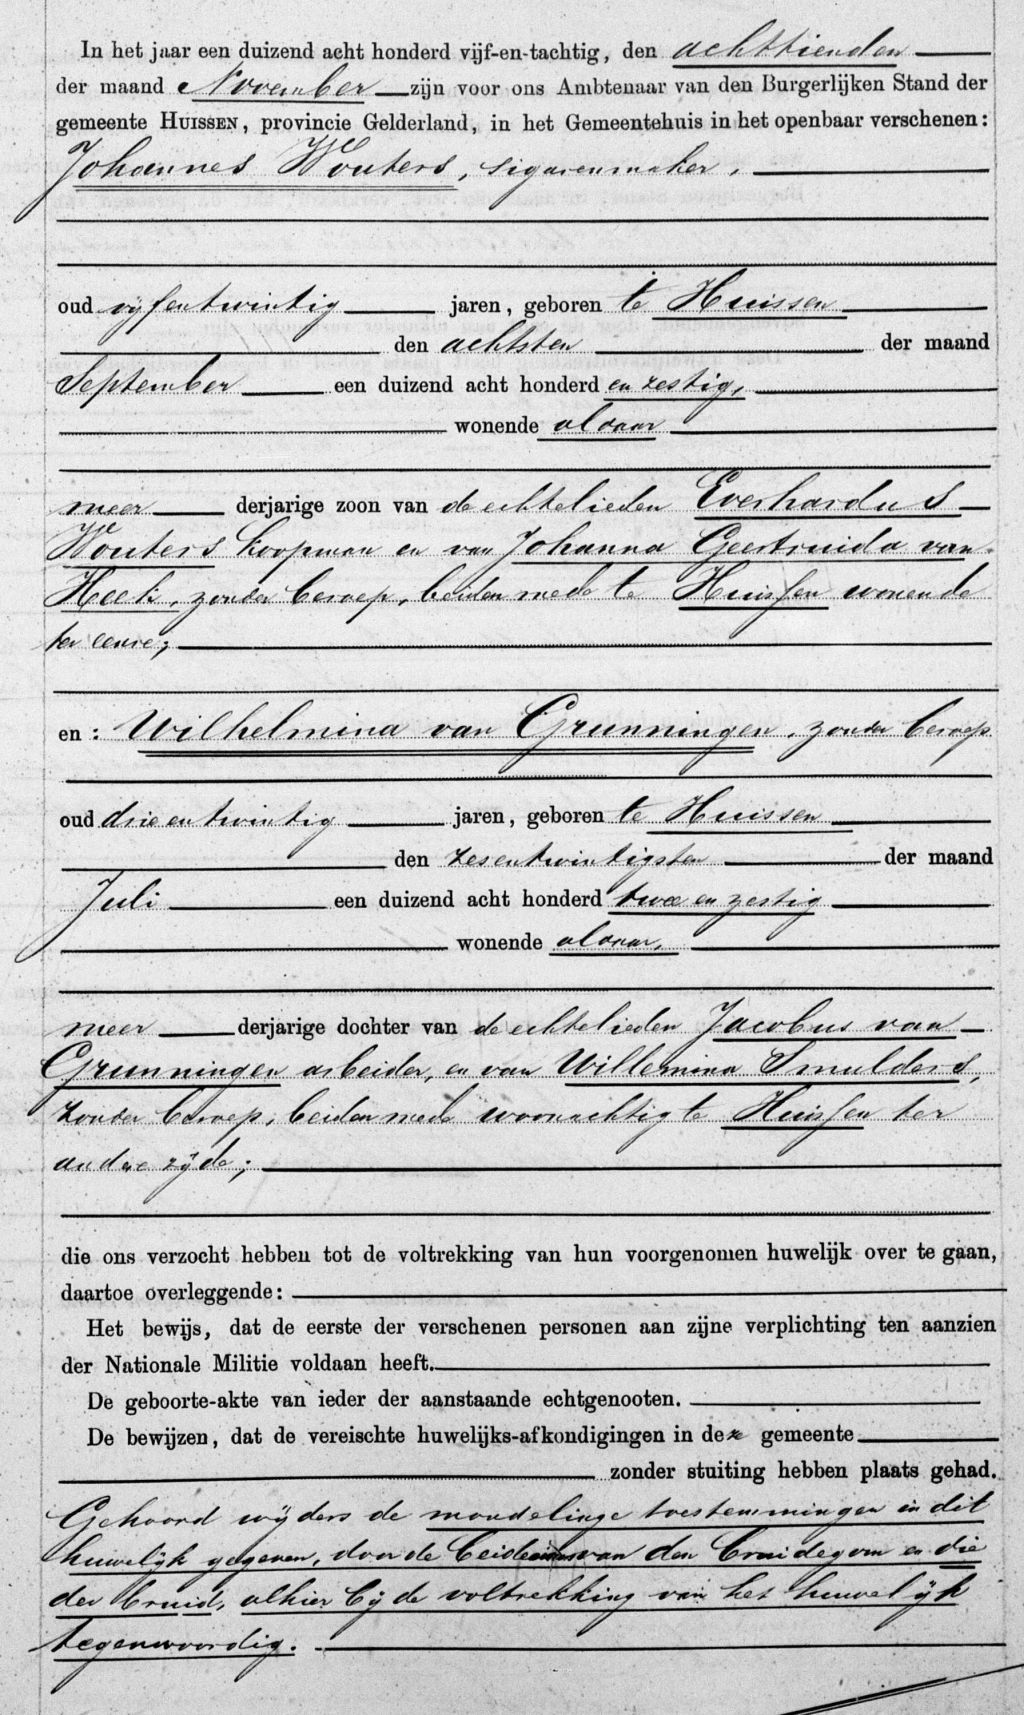 In het jaar een duizend acht honderd vijf-en-tachtig, den achttienden
der maand November zijn voor ons Ambtenaar van den Burgerlijken Stand der
gemeente HUISSEN, provincie Gelderland, in het Gemeentehuis in het openbaar verschenen:
Johannes Wouters, sigarenmaker,
oud vijfentwintig jaren, geboren te Huissen
den achtsten der maand
September een duizend acht honderd en zestig,
wonende aldaar
meer derjarige zoon van de echtelieden Everhardus
Wouters koopman en van Johanna Geertruida van
Heek, zonder beroep, beiden mede te Huissen wonende
ter eenre;
en: Wilhelmina van Grunningen, zonder beroep
oud drie en twintig jaren, geboren te Huissen
den zesentwintigsten der maand
Juli een duizend acht honderd twee en zestig
wonende aldaar,
meer derjarige dochter van de echtelieden Jacobus van
Grunningen arbeider, en van Willemina Smulders,
zonder beroep, beiden mede woonachtig te Huissen ter
andere zijde;
die ons verzocht hebben tot de voltrekking van hun voorgenomen huwelijk over te gaan,
daartoe overleggende:
Het bewijs, dat de eerste der verschenen personen aan zijne verplichting ten aanzien
der Nationale Militie voldaan heeft.
De geboorte-akte van ieder der aanstaande echtgenooten.
De bewijzen, dat de vereischte huwelijks-afkondigingen in deze gemeente
zonder stuiting hebben plaats gehad.
Gehoord wijders de mondelinge toestemmingen in dit
huwelijk gegeven, door de van den bruidegom en die
der bruid, alhier bij de voltrekking van het huwelijk
tegenwoordig.